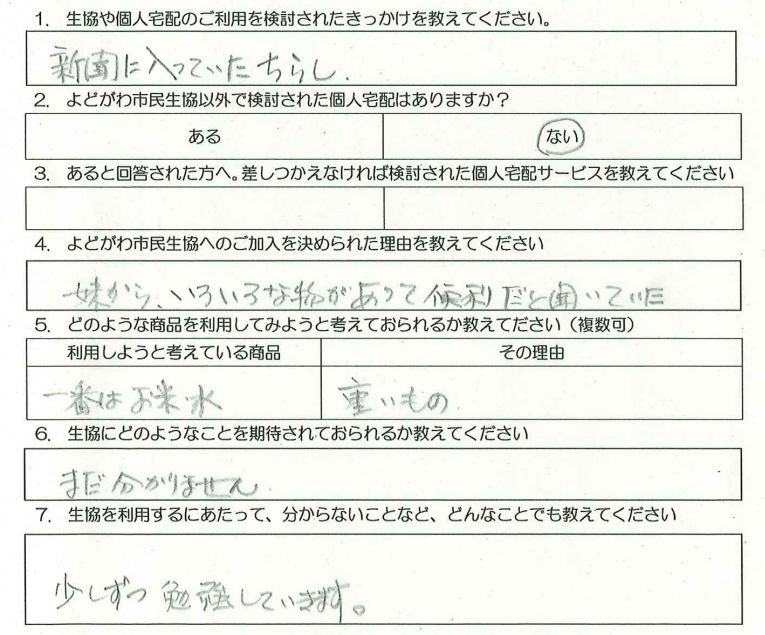 1. 生協や個人宅配のご利用を検討されたきっかけを教えてください。
新聞に入っていたちらし.
2. よどがわ市民生協以外で検討された個人宅配はありますか？
ある ない
3. あると回答された方へ。差しつかえなければ検討された個人宅配サービスを教えてください
4. よどがわ市民生協へのご加入を決められた理由を教えてください
妹から、いろいろな物があって便利だと聞いていた
5. どのような商品を利用してみようと考えておられるか教えてださい（複数可）
利用しようと考えている商品 その理由
一番はお米水 重いもの
6. 生協にどのようなことを期待されておられるか教えてください
まだ分かりません.
7. 生協を利用するにあたって、分からないことなど、どんなことでも教えてください
少しずつ勉強していきます。